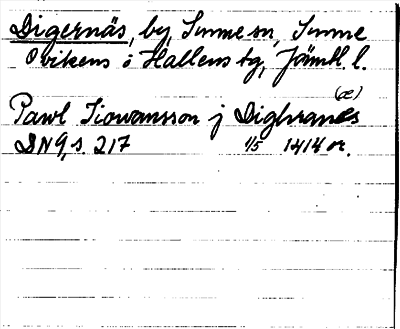 Digernäs, by, Sunne sn, Sunne
Ovikens o Hallens tg, Jämtl. l.
(æ)
Pawl Siowansson j Dighranes
DN 9, s. 217 1/5 1414 or.